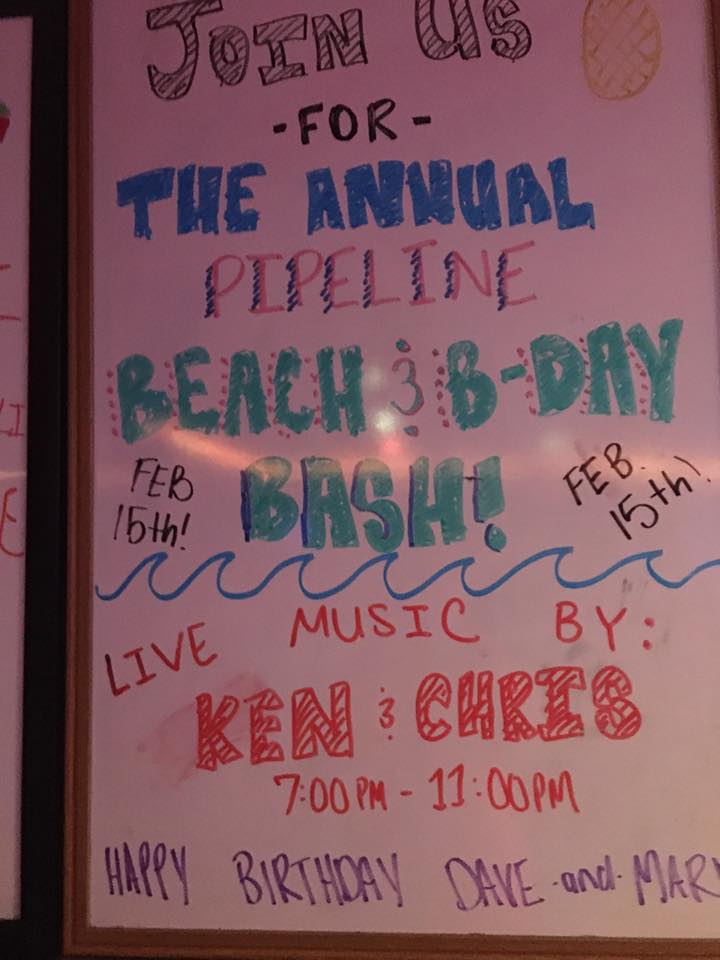 JOIN US
-FOR-
THE ANNUAL
PIPELINE
BEACH & B-DAY
BASH!
FEB
15th!
FEB.
15th!
LIVE MUSIC BY:
KEN & CHRIS
7:00PM - 11:00PM
HAPPY BIRTHDAY DAVE -and-